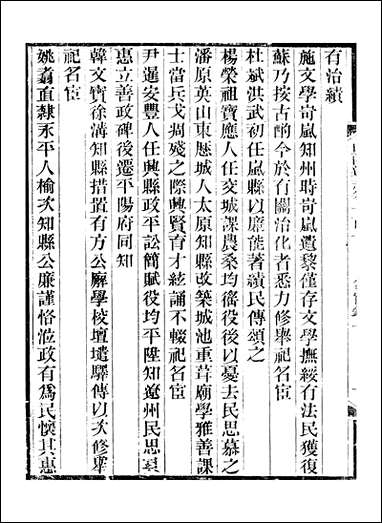 有治績
施文學岢嵐知州時岢嵐遺黎僅存文學撫綏有法民獲復
蘇乃按古酌今於有關治化者悉力修舉祀名宦
杜斌洪武初任嵐縣以廉能著績民傳頌之
楊榮祖寶應人任交城課農桑均徭役後以憂去民思慕之
潘原英山東歷城人太原知縣改築城池重葺廟學雅善課
士當兵戈凋殘之際興賢育才絃誦不輟祀名宦
尹暹安豐人任興縣政平訟簡賦役均平陞知遼州民思其
惠立善政碑後遷平陽府同知
韓文寶徐溝知縣措置有方公廨學校壇壝驛傳以次修舉
祀名宦
姚翥直隸永平人榆次知縣公廉謹恪蒞政有爲民懷其惠